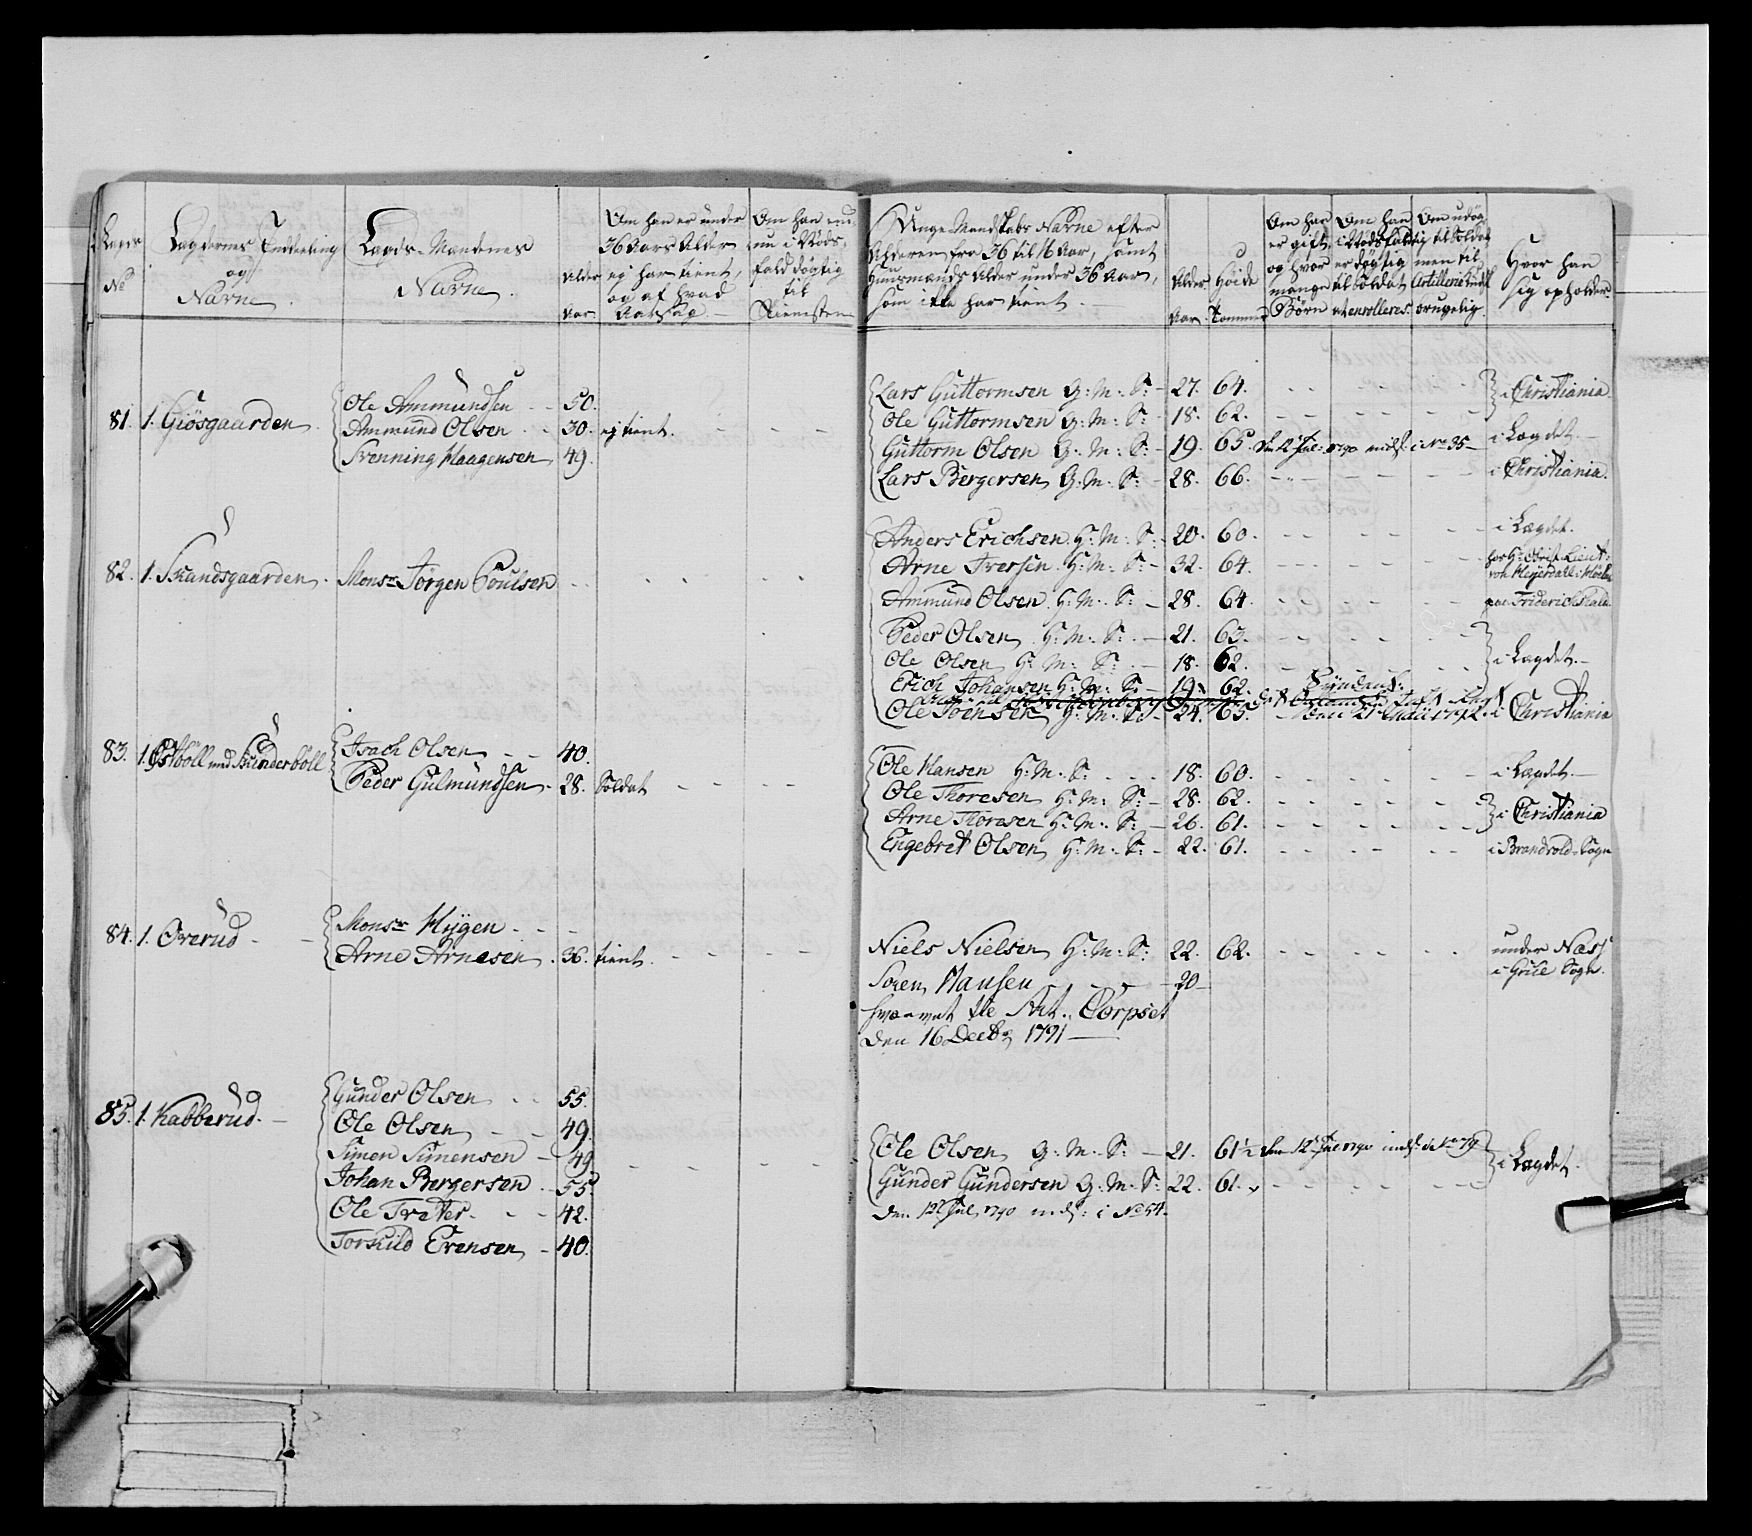 Lægds No
Lægdernes Inddeeling og Navne.
Lægds-Mændenes Navne.
Alder Aar
Om han er under 36 Aars Alder, ej har tient, og af hvad Aarsag
Om han endnu i Nødsfald dygtig til Tienesten
Unge Mandskabs Navne efter
Alderen fra 36 til 16 Aar, samt
Huusmænds Alder under 36 Aar,
som ikke har tient.
Alder Aar
Høide Tommer
Om han er gift, og hvor mange Børn
Om han i Nødsfald er dygtig til Soldat at enrolleres
Om udøgtig til Soldat men til Artillerie Kudsk brugelig
Hvor han sig opholder
81. 1. Giösgaarden
Ole Ammundsen 50.
Ammund Olsen 30. ej tient.
Svenning Haagensen 49.
Lars Guttormsen G: M: S: 27. 64.
Ole Guttormsen G: M: S: 18. 62.
i Christiania
Guttorm Olsen G: M: S: 19. 65. den 12 Jul: 1790 inds: i No 35 i Lægdet.
Lars Bergersen G: M: S: 28. 66. i Christiania.
82. 1. Strandsgaarden. Monsr Jørgen Poulsen
Anders Erichsen H: M: S: 20. 60. i Lægdet.
Arne Iversen H: M: S: 32. 64. hos Hr. Obrist Lieut: von Heyerdahl i
Ammund Olsen H: M: S: 28. 64. paa Friderichshald
Peder Olsen H: M: S: 21. 63.
Ole Olsen H: M: S: 18. 62.
i Lægdet.
Erich Johansen H: M: S: 19. 62.
Ole Joensen H: M: S: 24. 65. i Christiania
83. 1. Østböll med Sünderböll
Isach Olsen 40.
Peder Gulmundsen 28. Soldat
Ole Hansen H: M: S: 18. 60. i Lægdet.
Ole Thoresen H: M: S: 28. 62.
Arne Thoresen H: M: S: 26. 61.
i Christiania
Engebret Olsen H: M: S: 22. 61. i Brandvold Sogn
84. 1. Overud
Monsr Hygen
Arne Arnesen 36. tient.
Niels Nielsen H: M: S: 22. 62. under Næss i Grue Sogn.
Soren Hansen 20
hværvet til Art: Corpset
den 16 Decbr 1791
85. 1. Kabberud.
Gunder Olsen 55.
Ole Olsen 49.
Simen Simensen 49
Johan Bergersen 55.
Ole Træter 42.
Torskild Evensen 40.
Ole Olsen G: M: S: 21. 61½ den 12 Jul 1790 inds: i No 79
Gunder Gundersen G: M: S: 22. 61.
i Lægdet.
den 12 Jul 1790 inds: i No 54.